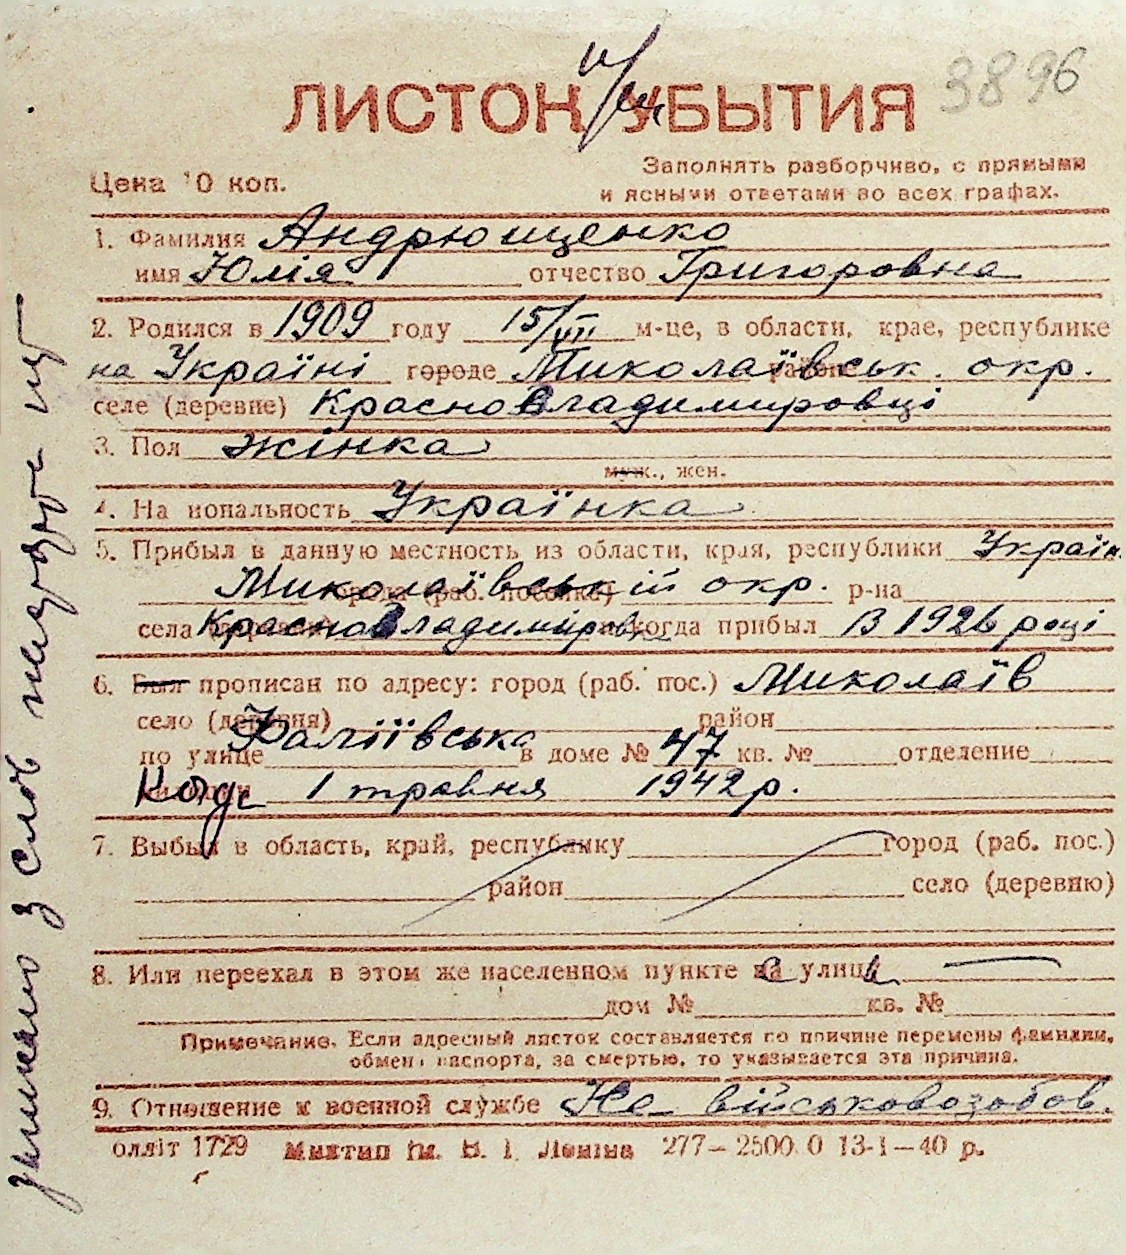 3896
ЛИСТОК УБЫТИЯ
Цена 10 коп.
Заполнять разборчиво, с прямыми
и ясными ответами во всех графах.
1. Фамилия Андрющенко
имя Юлія отчество Григоровна
2. Родился в 1909 году 15/VII м-це, в области, крае, республике
на Україні городе Миколаївськ. окр.
селе (деревне) Красновладимировці
3. Пол жінка
муж., жен.
4. Национальность Українка
5. Прибыл в данную местность из области, края, республики Україн.
Миколаївській окр. р-на
села Красновладимировка когда прибыл в 1926 році
6. Был прописан по адресу: город (раб. пос.) Миколаїв
село (деревня) район
по улице Фаліївська в доме № 47 кв. № отделение
1 травня 1942 р.
7. Выбыл в область, край, республику город (раб. пос.)
район село (деревню)
8. Или переехал в этом же населенном пункте на улицу
дом № кв. №
Примечание. Если адресный листок составляется по причине перемены фамилии,
обмена паспорта, за смертью, то указывается эта причина.
9. Отношение к военной службе Не військовозобов.
олліт 1729 Миктип ім. В. І. Леніна 277—2500 0 13-1—40 р.
з слов